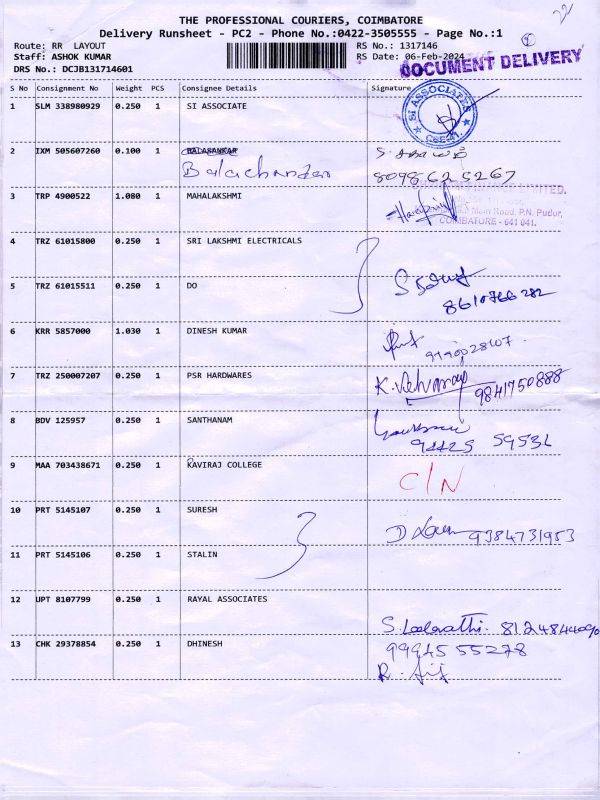 THE PROFESSIONAL COURIERS, COIMBATORE
Delivery Runsheet - PC2 - Phone No.:0422-3505555 - Page No.:1
Route: RR LAYOUT RS No.: 1317146
Staff: ASHOK KUMAR RS Date: 06-Feb-2024
DRS No.: DCJB131714601
DOCUMENT DELIVERY
S No Consignment No Weight PCS Consignee Details Signature
1 SLM 338980929 0.250 1 SI ASSOCIATE
SI ASSOCIATES
CBE-41.
2 IXM 505607260 0.100 1 BALASANKAR
Balachander
8098625267
3 TRP 4900522 1.080 1 MAHALAKSHMI
LIMITED.
Main Road, P.N. Pudur,
COIMBATORE - 641 041.
4 TRZ 61015800 0.250 1 SRI LAKSHMI ELECTRICALS
5 TRZ 61015511 0.250 1 DO
8610766282
6 KRR 5857000 1.030 1 DINESH KUMAR
7 TRZ 250007207 0.250 1 PSR HARDWARES
9841750888
8 BDV 125957 0.250 1 SANTHANAM
9 MAA 703438671 0.250 1 KAVIRAJ COLLEGE
C/N
10 PRT 5145107 0.250 1 SURESH
9384731953
11 PRT 5145106 0.250 1 STALIN
12 UPT 8107799 0.250 1 RAYAL ASSOCIATES
13 CHK 29378854 0.250 1 DHINESH
9994555278